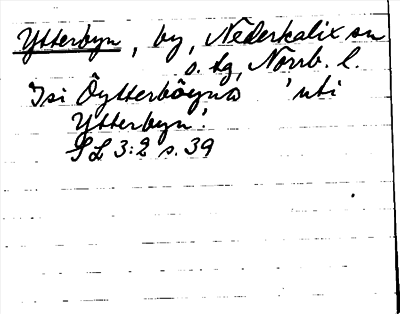 Ytterbyn, by, Nederkalix sn
s. tg, Norrb. l.
Isi Ôytterbôyna 'uti
Ytterbyn'
SL 3:2 s. 39